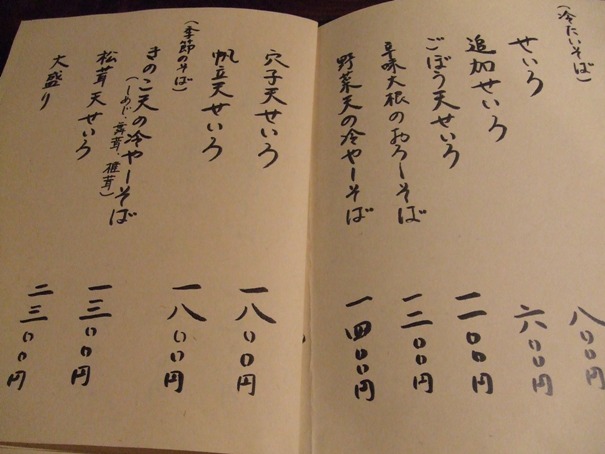 (冷たいそば)
せいろ 八〇〇円
追加せいろ 六〇〇円
ごぼう天せいろ 一一〇〇円
辛味大根のおろしそば 一二〇〇円
野菜天の冷やしそば 一四〇〇円
穴子天せいろ 一八〇〇円
帆立天せいろ 一八〇〇円
(季節のそば)
きのこ天の冷やしそば 一三〇〇円
(しめじ、舞茸、椎茸)
松茸天せいろ 二三〇〇円
大盛り